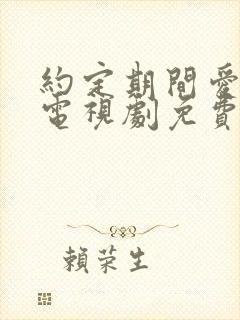 約定期間愛
電視劇免費
賴荣生